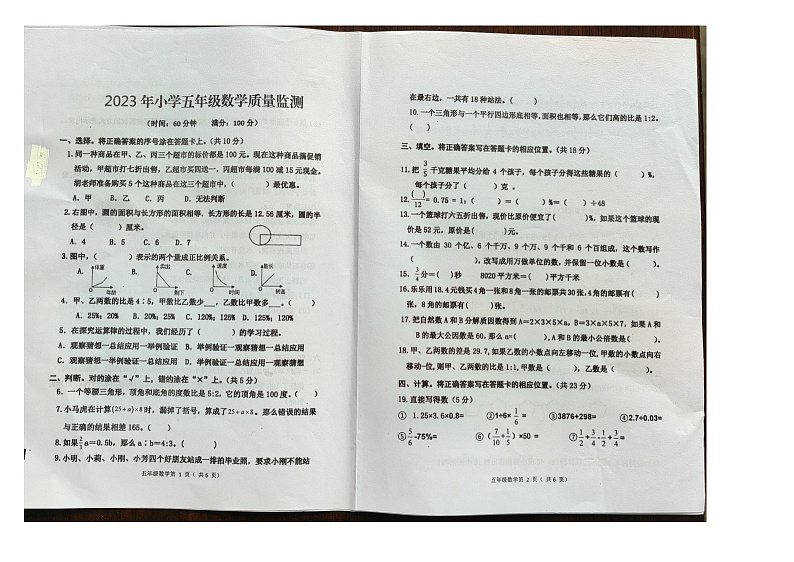 2023 年小学五年级数学质量监测
（时间：60 分钟 满分：100 分）
一、选择。将正确答案的序号涂在答题卡上。（共 10 分）
1. 同一种商品在甲、乙、丙三个超市的标价都是 100 元。现在这种商品搞促销
活动，甲超市打七折出售，乙超市买四送一，丙超市每满 100 减 15 元现金。
胡老师准备购买 5 个这种商品在这三个超市中，（ ）最优惠。
A. 甲 B. 乙 C. 丙 D. 无法判断
2. 右图中，圆的面积与长方形的面积相等．长方形的长是 12.56 厘米，圆的半
径是（ ）厘米。
A. 4 B. 5 C. 6 D. 7
3. 图中，（ ）表示的两个量成正比例关系。
A. 体重 年龄 0 B. 卖出 剩下 0 C. 速度 时间 0 D. 影长 树高 0
4. 甲、乙两数的比是 4∶5，甲数比乙数少___，乙数比甲数多___。（ ）
A. 25%；20% B. 20%；25% C. 120%；125% D. 125%；120%
5. 在探究运算律的过程中，我们经历了（ ）的学习过程。
A. 观察猜想一总结应用一举例验证 B. 举例验证一观察猜想一总结应用
C. 观察猜想一举例验证一总结应用 D. 举例验证一总结应用一观察猜想
二、判断。对的涂在“√”上，错的涂在“×”上。（共 5 分）
6. 一个等腰三角形，顶角和底角的度数比是 5:2，它的顶角是 100 度。（ ）
7. 小马虎在计算(25+a)×8时，漏掉了括号，算成了25+a×8，那么错误的结果
与正确的结果相差 165。（ ）
8. 如果2/3 a＝0.5b，那么 a∶b＝4:3。（ ）
9. 小明、小莉、小刚、小芳四个好朋友站成一排拍毕业照，要求小刚不能站
五年级数学第 1 页（ 共 6 页）
在最右边，一共有 18 种站法。（ ）
10. 一个三角形与一个平行四边形底相等，面积也相等，那么它们高的比是 1:2。
（ ）
三、填空。将正确答案写在答题卡的相应位置。（共 18 分）
11. 把 3/5 千克糖果平均给 4 个孩子，每个孩子分得这些糖果的（ ）%，
每个孩子分了（ ）克 。
12. ( )/12 = 0.75 = 1:（ ）=（ ）%=（ ）÷48
13. 一个篮球打六五折出售，现价比原价便宜了（ ）%，如果这个篮球的现
价是 52 元，原价是（ ）元。
14. 一个数由 30 个亿、6 个千万、9 个万、9 个千和 6 个百组成，这个数写作
（ ），改写成用万做单位的数，并保留一位小数是（ ）。
15. 3/4分=（ ）秒 8020 平方米=（ ）平方千米
16. 乐乐用 18.4 元钱买 4 角一张和 8 角一张的邮票共 30 张，4 角的邮票有（ ）
张，8 角的邮票有（ ）张。
17. 把自然数 A 和 B 分解质因数得到 A＝2×3×5×a，B＝3×a×5×7，如果 A 和
B 的最大公因数是 60，那么 a=（ ），A 和 B 的最小公倍数是（ ）。
18. 甲、乙两数的差是 29.7，如果乙数的小数点向左移动一位，甲数的小数点向右
移动一位，则甲、乙两数的比是 1:1，甲数是（ ），乙数是（ ）。
四、计算。将正确答案写在答题卡的相应位置。（共 23 分）
19. 直接写得数（5 分）
① 1.25×3.6×0.8= ②1÷6× 1/6 = ③3876+298= ④2.7÷0.03=
⑤5/6 -75%= ⑥（7/10+1/5）×50 = ⑦1/2+3/4-1/2+3/4=
五年级数学第 2 页（ 共 6 页）